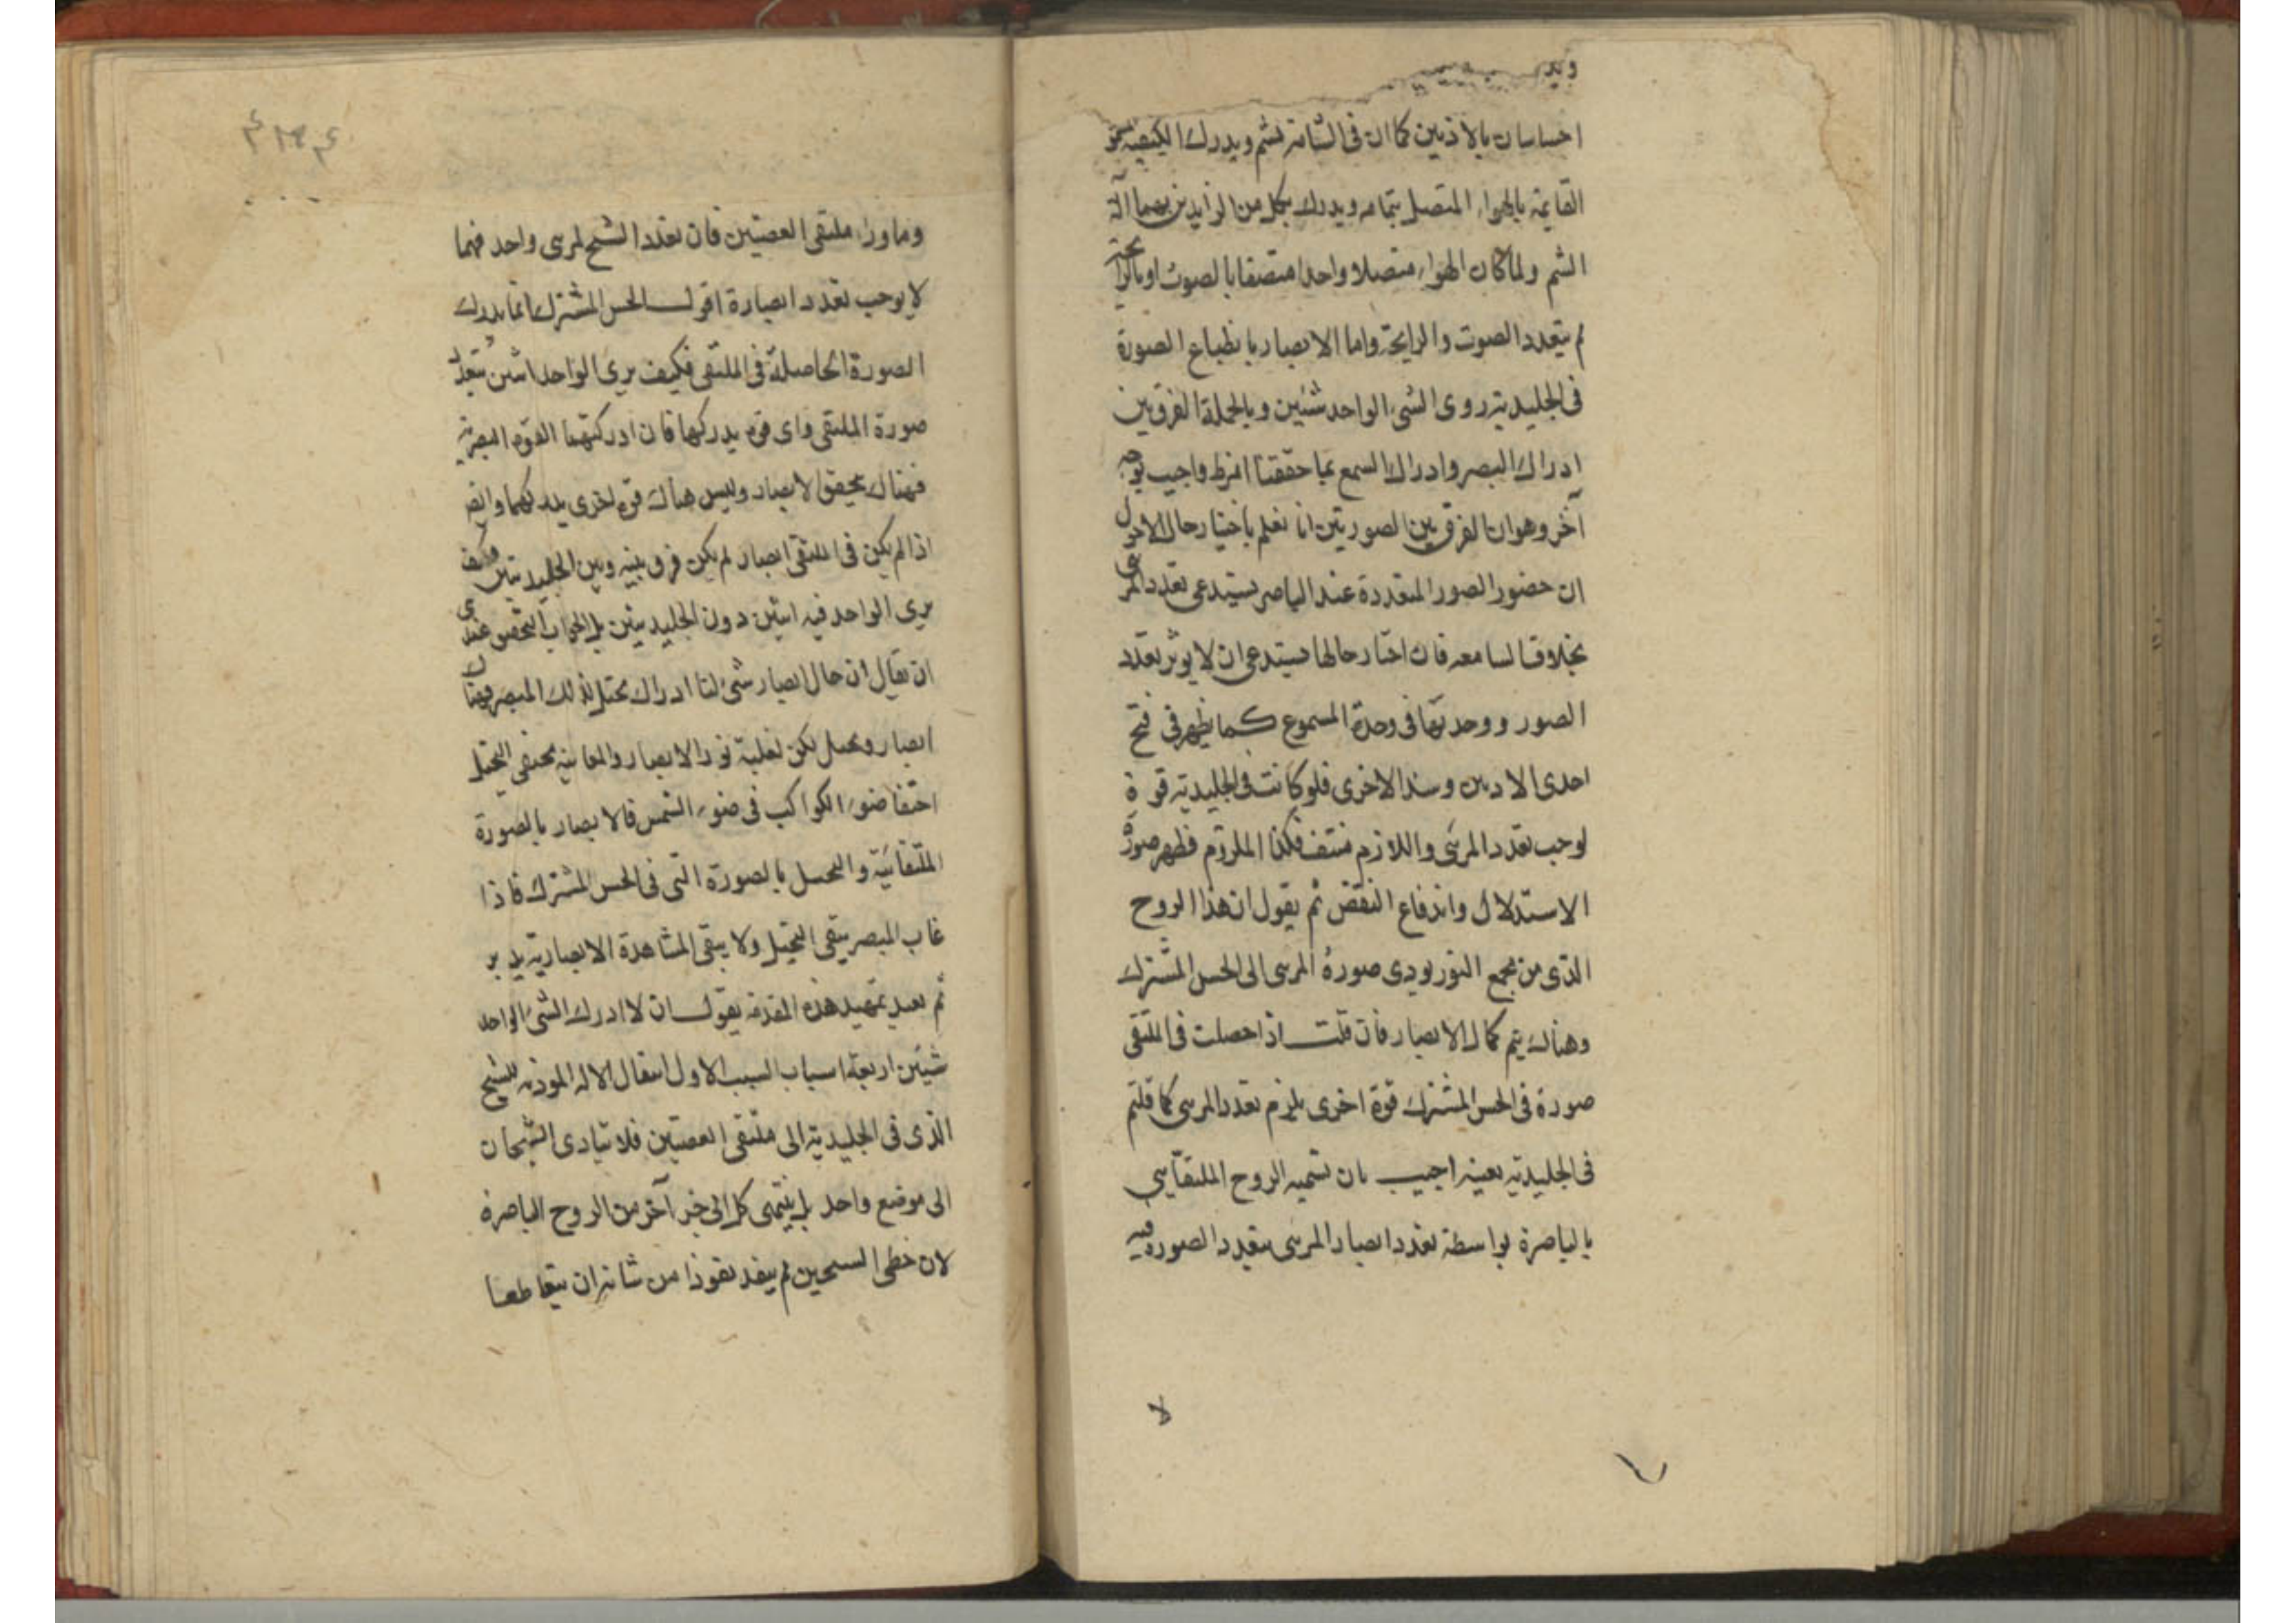 ويد
احساسان بالاذنين كما ان فى الشامة تشم ويدرك الكيفية
القايمة بالهواء المتصل بتمامه ويدرك بكل من الزايدين بهما آلة
الشم ولما كان الهواء متصلا واحدا متصفا بالصوت او بالرايحة
لم يتعدد الصوت والرايحة واما الابصار بانطباع الصورة
فى الجليدية روى الشىء الواحد شئين وبالجملة الفرق بين
ادراك البصر وادراك السمع بما حققنا واجيب بوجه
آخر وهو ان الفرق بين الصورتين انا نعلم باختيار حال الاحول
ان حضور الصور المتعددة عند الباصر يستدعى تعدد المرئى
بخلاف السامعه فان اختبار حالها يستدعى ان لا يوثر تعدد
الصور ووحدتها فى وحدة المسموع كما يظهر فى فتح
احدى الاذنين وسد الاخرى فلو كانت فى الجليدية قوة
لوجب تعدد المرئى واللازم منتف فكذا الملزوم فظهر صورة
الاستدلال واندفاع النقض ثم يقول ان هذا الروح
الذى من مجمع النور يودى صورة المرئى الى الحس المشترك
وهناك يتم كمال الابصار فان قلت اذا حصلت فى الملتقى
صورة فى الحس المشترك قوة اخرى يلزم تعدد المرئى كما قلتم
فى الجليدية بعينه اجيب بان تسميه الروح الملتقائى
بالباصرة بواسطة تعدد ابصار المرئى بتعدد الصورة فيه
لا
وما وراء ملتقى العصبتين فان تعدد الشبح لمرئى واحد فيهما
لا يوجب تعدد ابصارة اقول الحس المشترك انما يدرك
الصورة الحاصلة فى الملتقى فكيف يرى الواحد اثنين بتعدد
صورة الملتقى واى قوة يدركها فان ادركتهما القوة البصرية
فهناك يحقق الابصار وليس هناك قوة اخرى يدركهما وايضا
اذا لم يكن فى الملتقى ابصار لم يكن فرق بينه وبين الجليديتين فكيف
يرى الواحد فيه اثنين دون الجليديتين بل الجواب التحقيق عندى
ان يقال ان حال ابصار شىء لنا ادراك تخيل لذلك المبصر فهناك
ابصار وتخيل لكن لغلبة نور الابصار والمعاينة يختفى التخيل
اختفا ضوء الكواكب فى ضوء الشمس فالابصار بالصورة
الملتقائية والتخيل بالصورة التى فى الحس المشترك فاذا
غاب المبصر يبقى التخيل ولا يبقى المشاهدة الابصارية
ثم بعد تمهيد هذه المقدمة يقول ان لادراك الشىء الواحد
شيئين اربعة اسباب السبب الاول انتقال الاله المودية للشبح
الذى فى الجليدية الى ملتقى العصبتين فلا يتادى الشبحان
الى موضع واحد بل ينتهى كل الى جزء آخر من الروح الباصرة
لان خطى الشبحين لم ينفذ نفوذا من شانه ان يتقاطعا